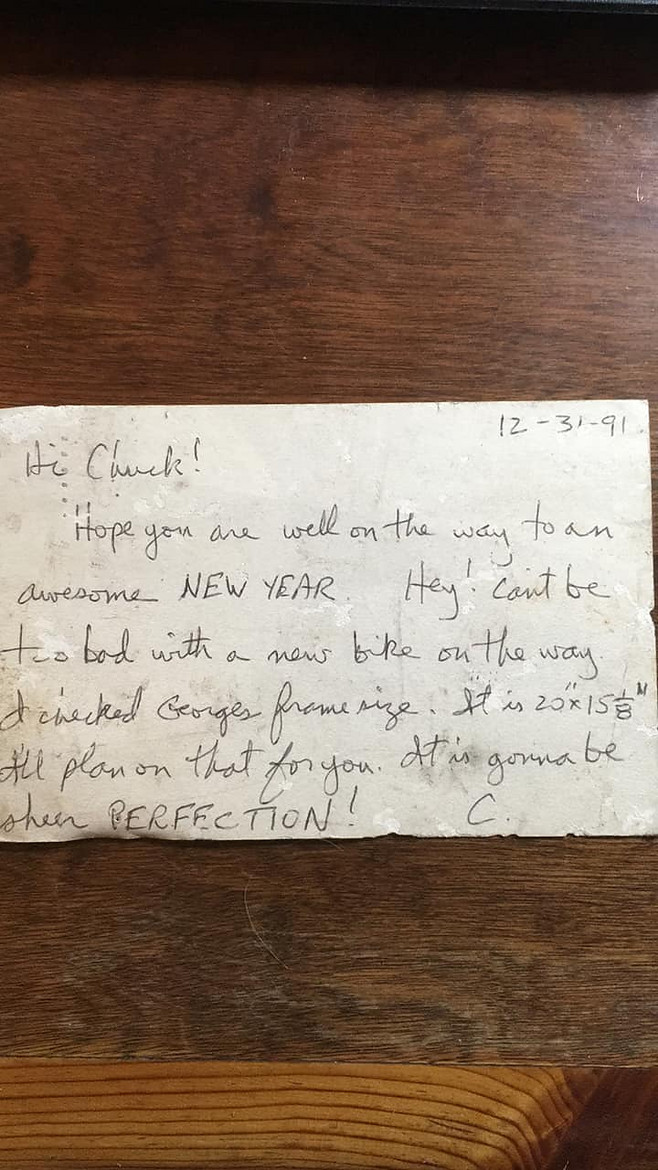 12-31-91.
Hi Chuck!
Hope you are well on the way to an
awesome NEW YEAR. Hey! Can't be
too bad with a new bike on the way.
I checked Georges frame size. It is 20"x15 1/8"
I'll plan on that for you. It is gonna be
sheer PERFECTION! C.